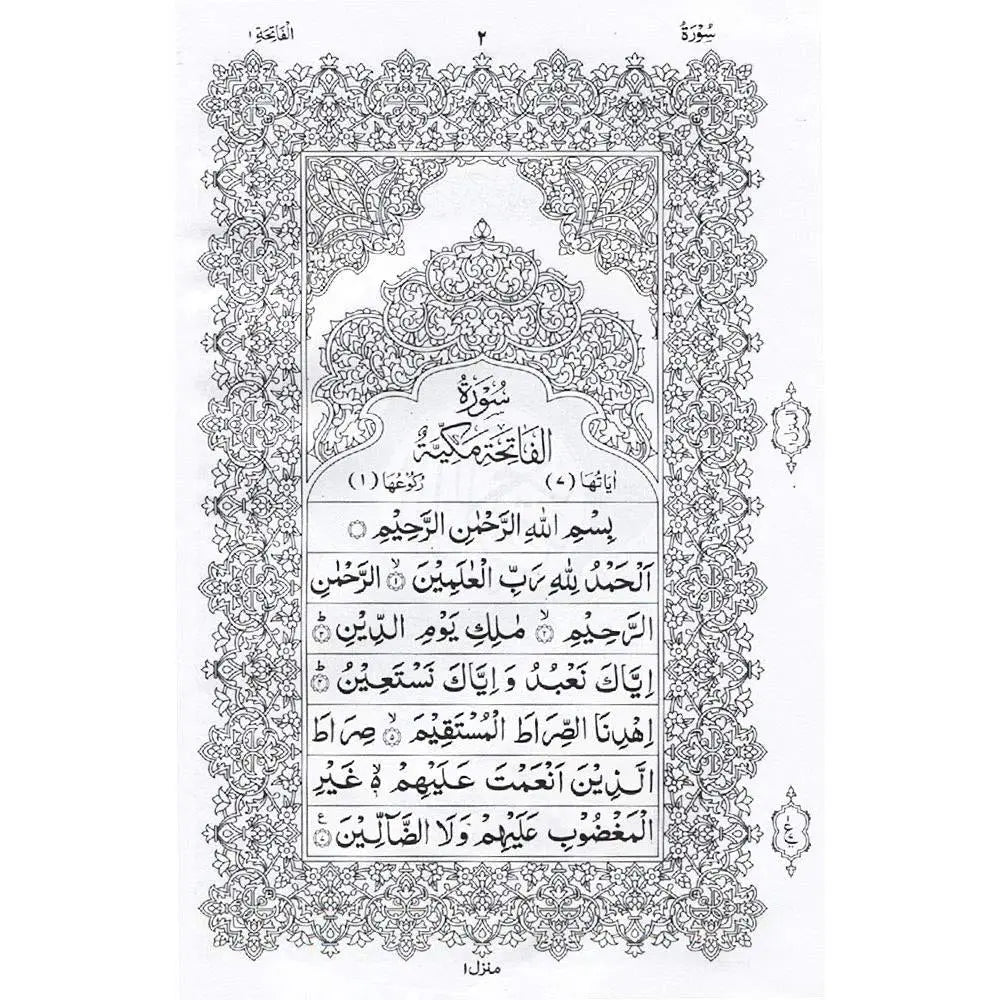 سُوْرَةُ ٢ الْفَاتِحَةِ ١
سُوْرَةُ
الْفَاتِحَةِ مَكِّيَّةٌ
اٰيَاتُهَا (٧) رُكُوْعُهَا (١)
بِسْمِ اللهِ الرَّحْمٰنِ الرَّحِيْمِ ۝
اَلْحَمْدُ لِلّٰهِ رَبِّ الْعٰلَمِيْنَ ۙ‏﴿١﴾ الرَّحْمٰنِ
الرَّحِيْمِ ۙ‏﴿٢﴾ مٰلِكِ يَوْمِ الدِّيْنِ ؕ‏﴿٣﴾
اِيَّاكَ نَعْبُدُ وَ اِيَّاكَ نَسْتَعِيْنُ ؕ‏﴿٤﴾
اِهْدِنَا الصِّرَاطَ الْمُسْتَقِيْمَ ۙ‏﴿٥﴾ صِرَاطَ
الَّذِيْنَ اَنْعَمْتَ عَلَيْهِمْ ۙ۬ غَيْرِ
الْمَغْضُوْبِ عَلَيْهِمْ وَلَا الضَّآلِّيْنَ ﴿٧﴾ ع
المنزل
ع
منزل ١